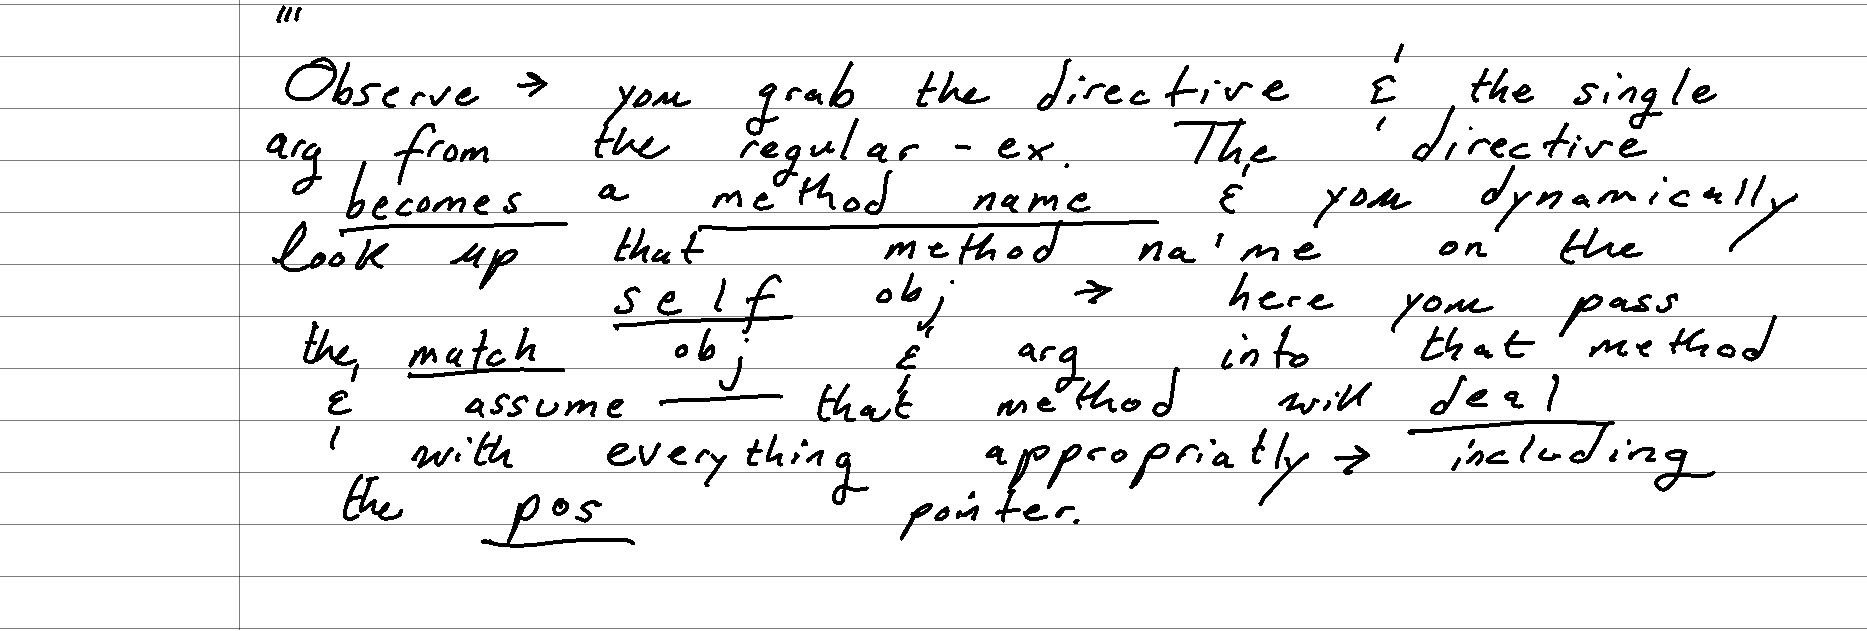 '''
Observe → you grab the directive & the single
arg from the regular-ex. The directive
becomes a method name & you dynamically
look up that method na'me on the
self obj → here you pass
the match obj & arg into that method
& assume — that method will deal
with everything appropriatly → including
the pos pointer.